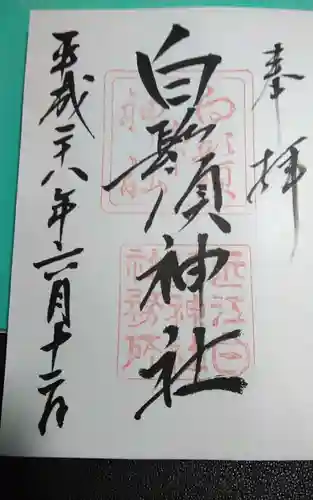 奉拝
白鬚神社
平成二十八年六月十二日